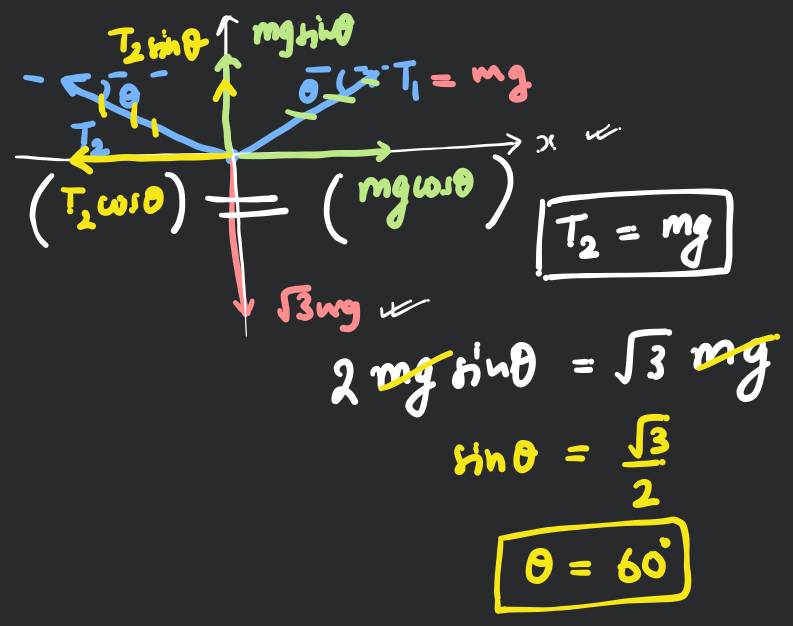 T₂sinθ mgsinθ
θ θ T₁ = mg
T₂
x
(T₂cosθ) = (mgcosθ)
T₂ = mg
√3mg
2 mg sinθ = √3 mg
sinθ = √3/2
θ = 60°